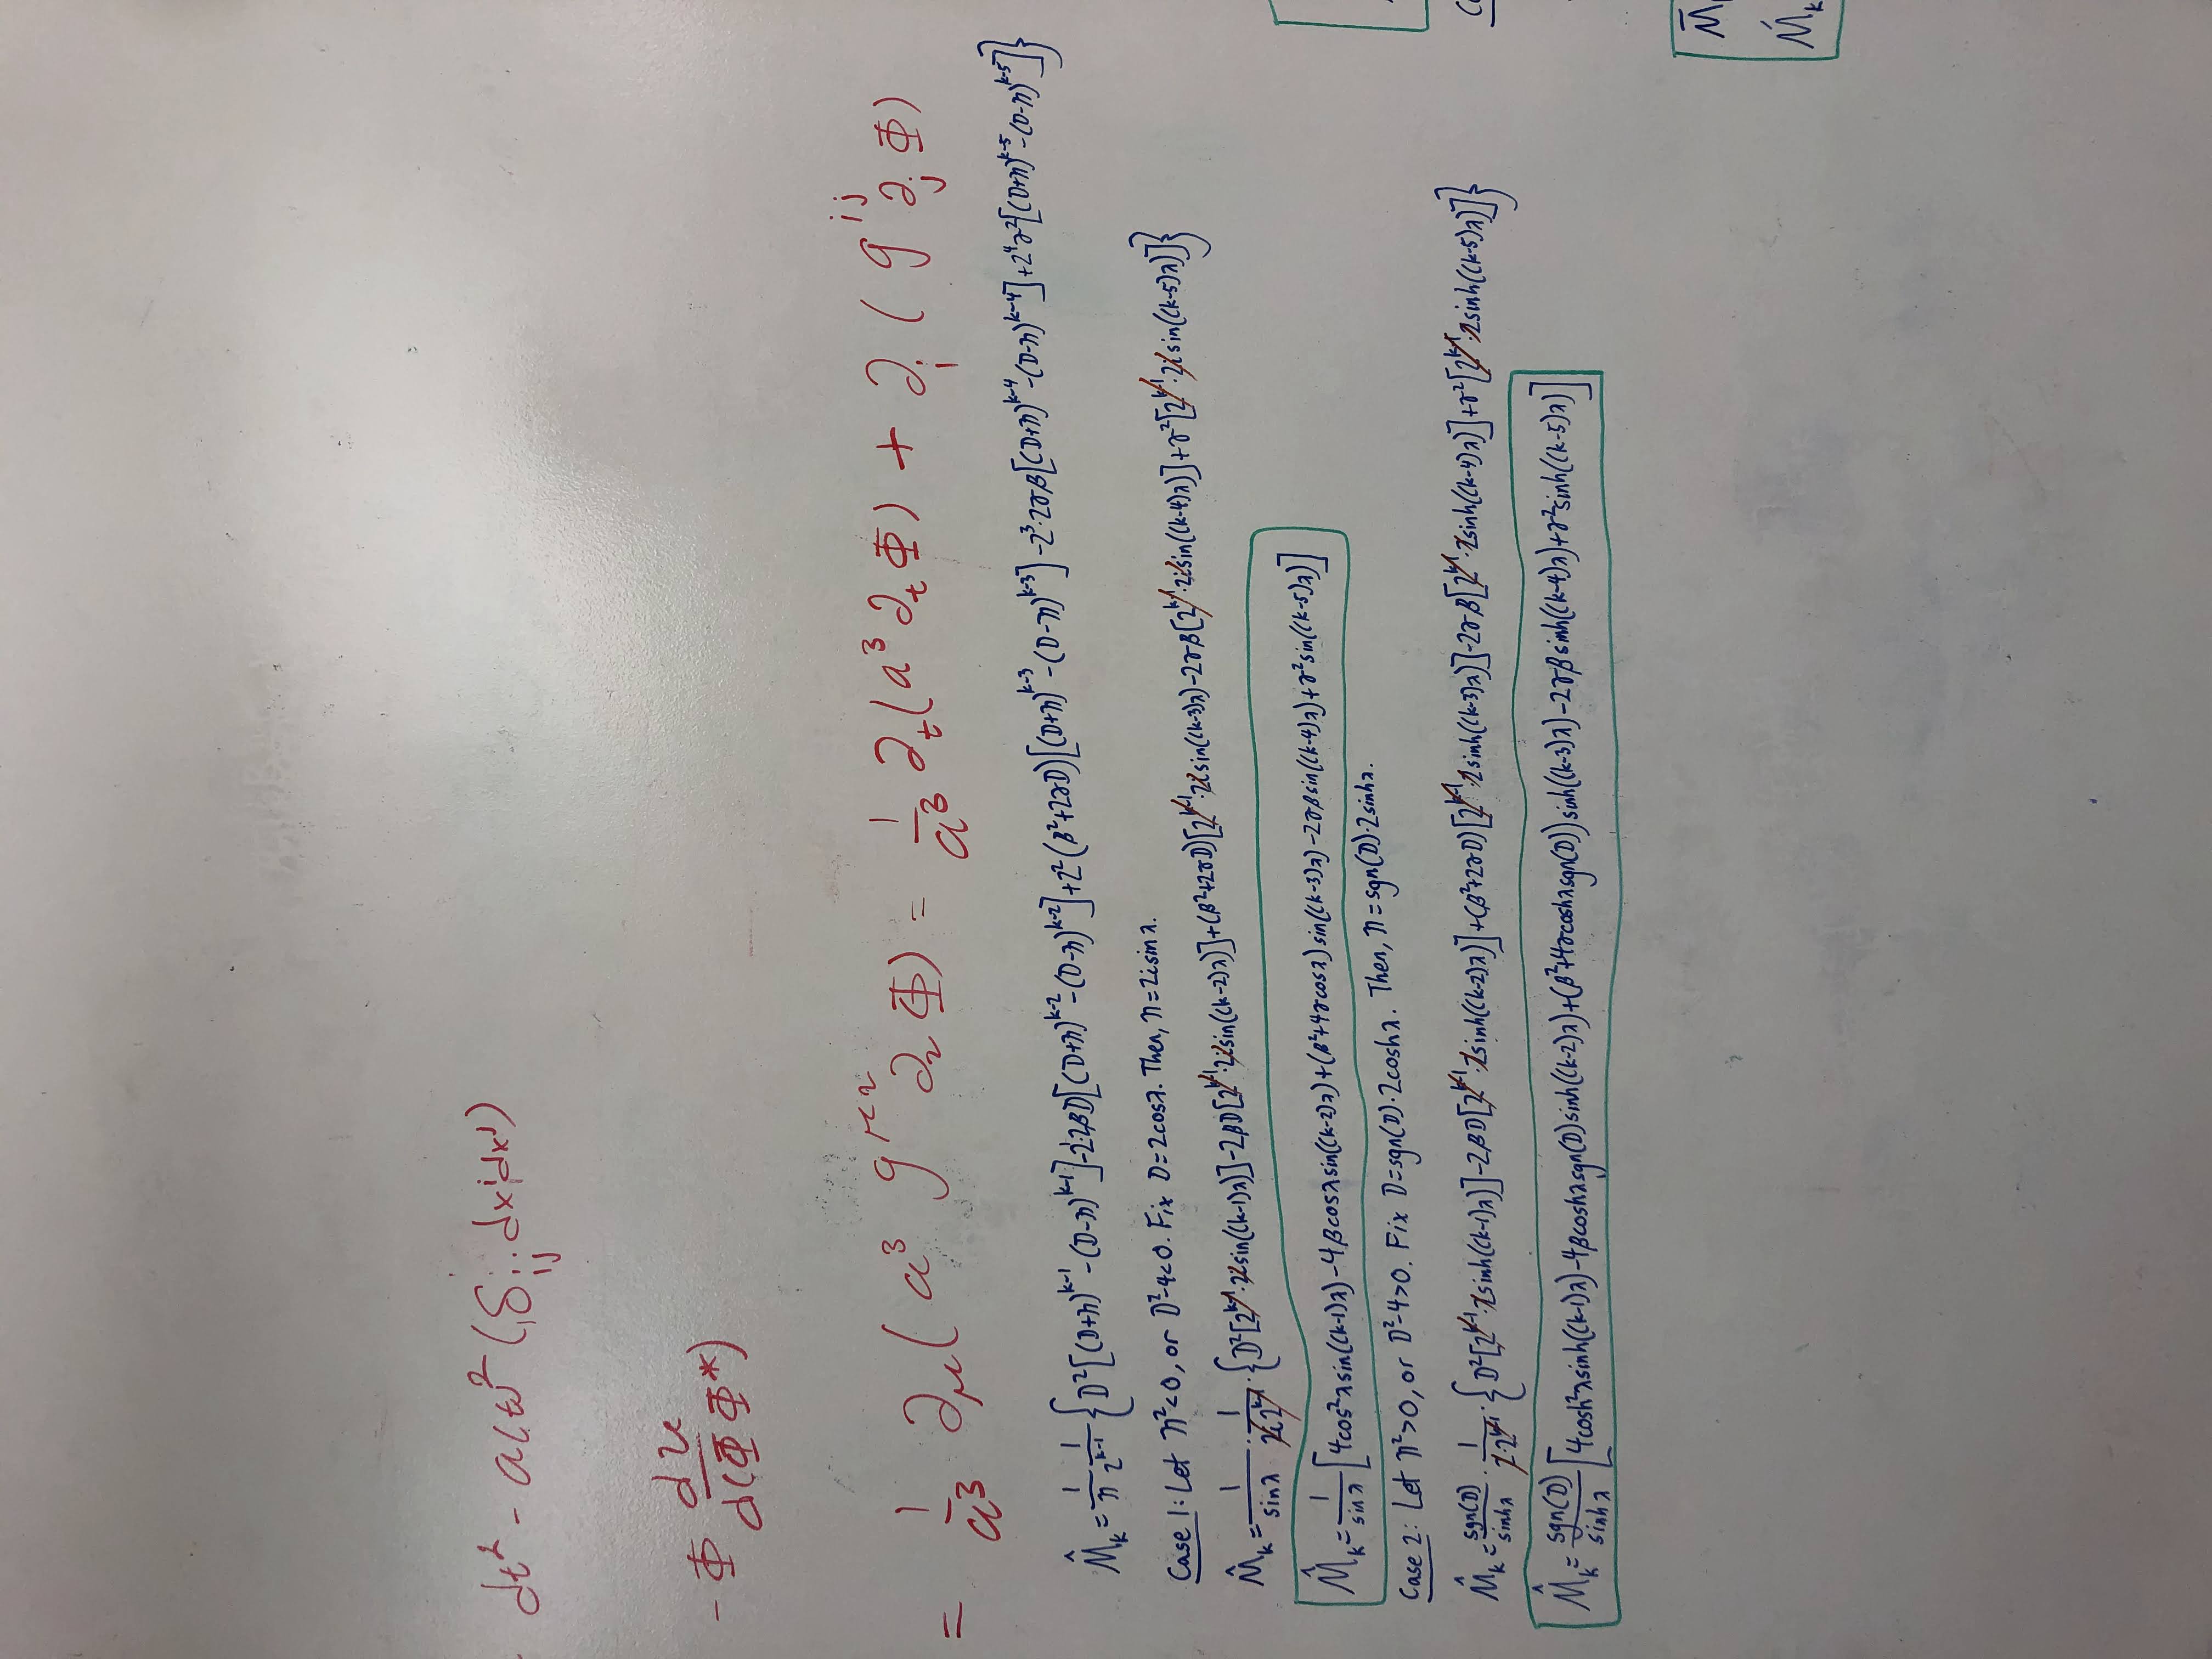 dt² - a(t)² (δ_ij dxⁱdxʲ)
- Φ du/d(ΦΦ*)
= 1/a³ ∂_μ( a³ g^{μν} ∂_ν Φ) = 1/a³ ∂_t(a³ ∂_t Φ) + ∂_i ( g^{ij} ∂_j Φ)
M̂_k = 1/η 1/2^{k-1} {D²[(D+η)^{k-1}-(D-η)^{k-1}]-2·2βD[(D+η)^{k-2}-(D-η)^{k-2}]+2²(β²+2γD)[(D+η)^{k-3}-(D-η)^{k-3}]-2³·2γβ[(D+η)^{k-4}-(D-η)^{k-4}]+2⁴γ²[(D+η)^{k-5}-(D-η)^{k-5}]}
Case 1: Let η²<0, or D²-4<0. Fix D=2cosλ. Then, η=2isinλ.
M̂_k = 1/sinλ · 1/2i2^{k-1} · {D²[2^{k-1}·2isin((k-1)λ)]-2βD[2^{k-1}·2isin((k-2)λ)]+(β²+2γD)[2^{k-1}·2isin((k-3)λ)-2γβ[2^{k-1}·2isin((k-4)λ)]+γ²[2^{k-1}·2isin((k-5)λ)]}
M̂_k = 1/sinλ [4cos²λsin((k-1)λ)-4βcosλsin((k-2)λ)+(β²+4γcosλ)sin((k-3)λ)-2γβsin((k-4)λ)+γ²sin((k-5)λ)]
Case 2: Let η²>0, or D²-4>0. Fix D=sgn(D)·2coshλ. Then, η=sgn(D)·2sinhλ.
M̂_k = sgn(D)/sinhλ · 1/2·2^{k-1} · {D²[2^{k-1}·2sinh((k-1)λ)]-2βD[2^{k-1}·2sinh((k-2)λ)]+(β²+2γD)[2^{k-1}·2sinh((k-3)λ)]-2γβ[2^{k-1}·2sinh((k-4)λ)]+γ²[2^{k-1}·2sinh((k-5)λ)]}
M̂_k = sgn(D)/sinhλ [4cosh²λsinh((k-1)λ)-4βcoshλsgn(D)sinh((k-2)λ)+(β²+4γcoshλsgn(D))sinh((k-3)λ)-2γβsinh((k-4)λ)+γ²sinh((k-5)λ)]
M̄
Ḿ_k